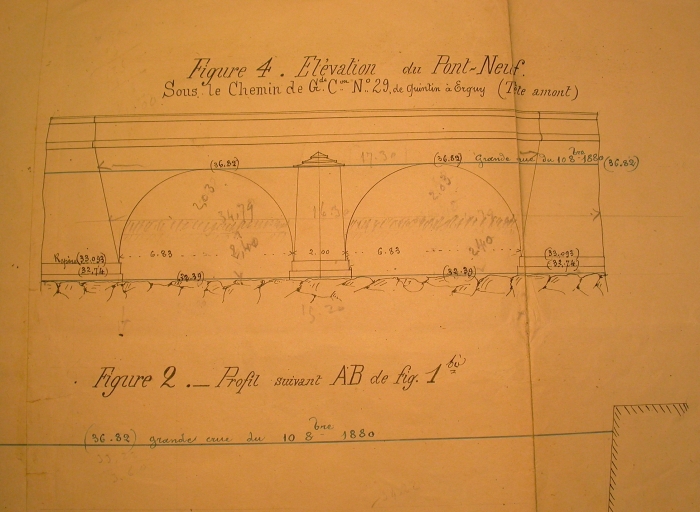 Figure 4. Elévation du Pont-Neuf.
Sous le Chemin de Gde Con No. 29, de Quintin à Erquy (Tête amont)
(36.82) 17.30 (36.82) Grande crue du 10 8bre 1880 (36.82)
2.03 2.03
34,74
16.30
2,40 2,40
6.83 2.00 6.83
Repère (33.093) (33.093)
(32.74) (32.74)
(32.39) (32.39)
Figure 2. _ Profil suivant AB de fig. 1 bis
(36.82) grande crue du 10 8bre 1880